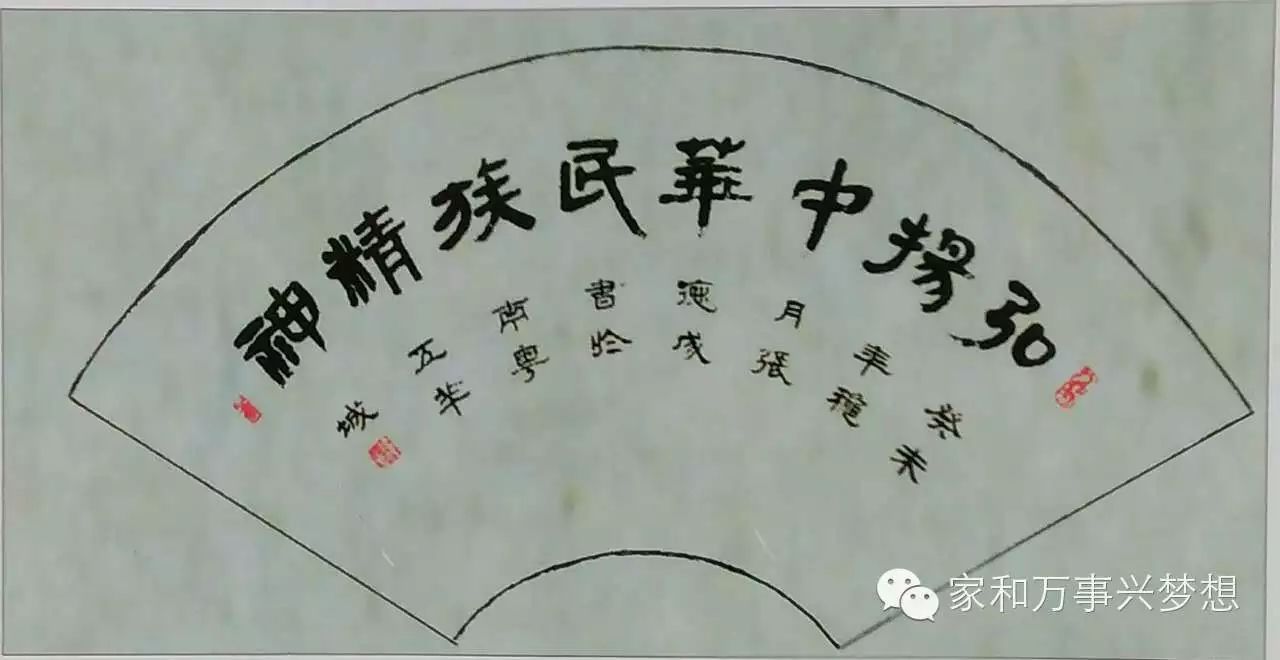 弘揚中華民族精神
癸未
年穐
月張
德成
書於
南粵
五羊
城
家和万事兴梦想